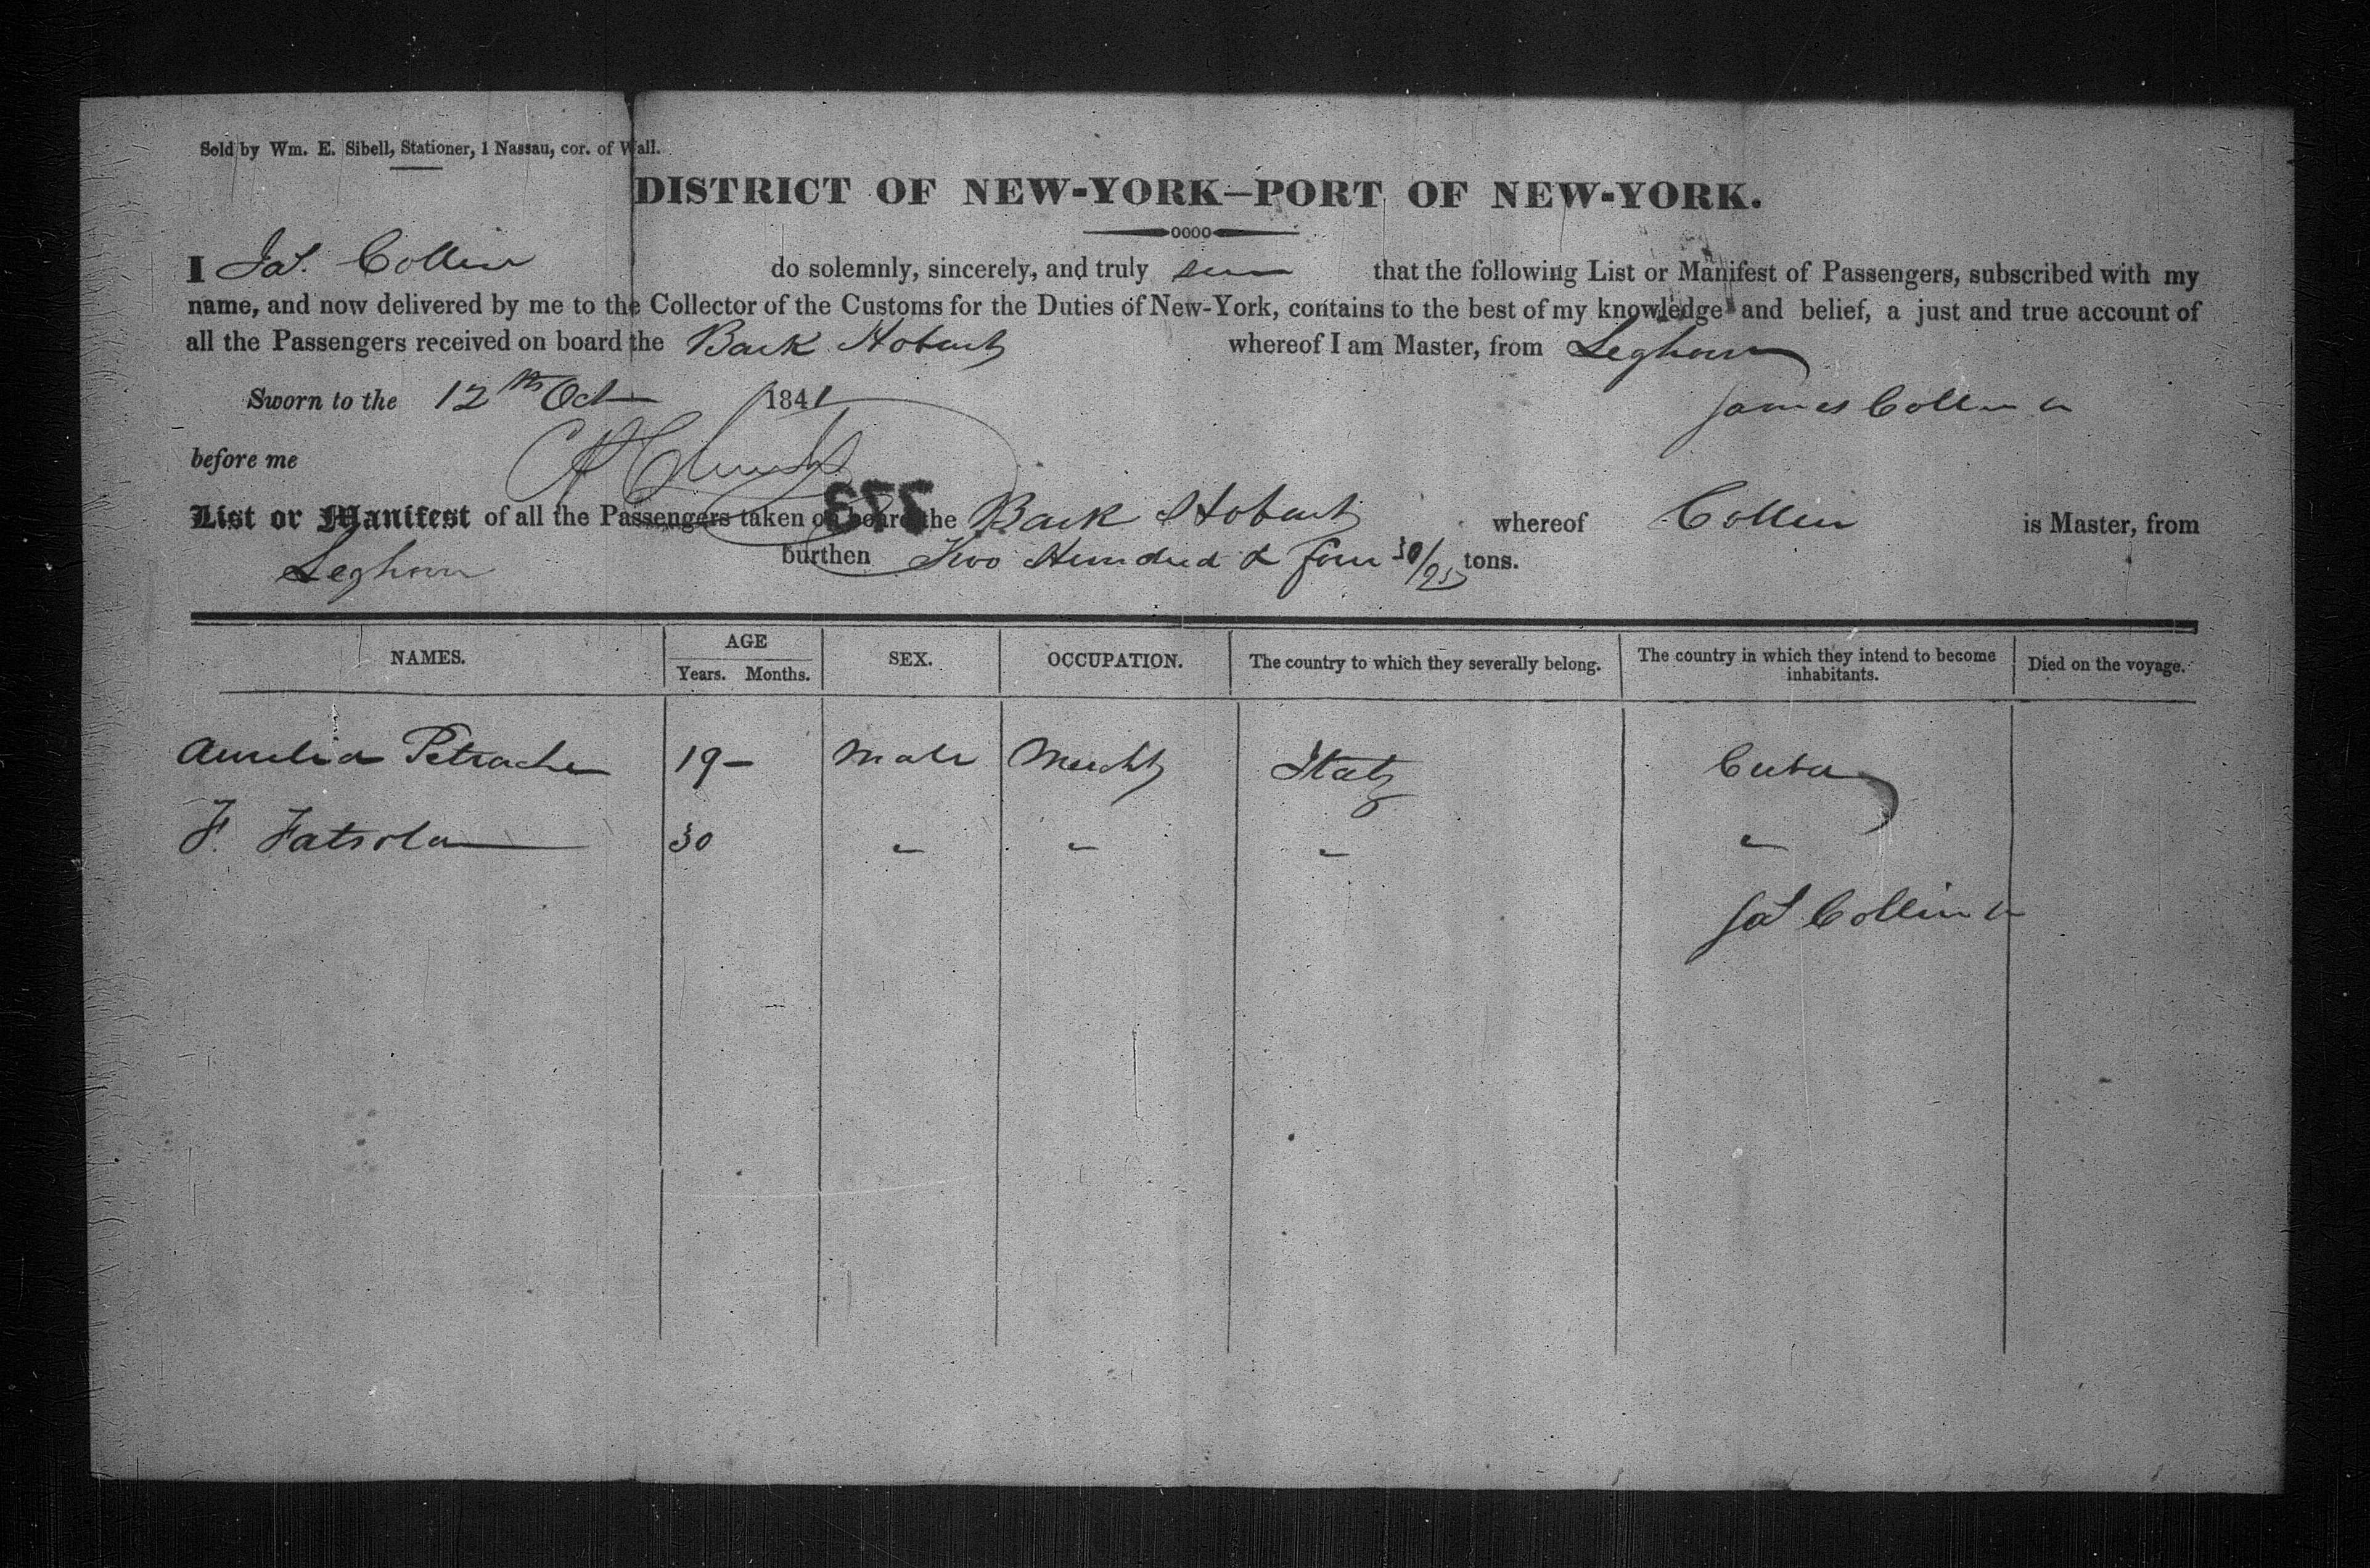 Sold by Wm. E. Sibell, Stationer, 1 Nassau, cor. of Wall.
DISTRICT OF NEW-YORK—PORT OF NEW-YORK.
I Jas. Collin do solemnly, sincerely, and truly that the following List or Manifest of Passengers, subscribed with my
name, and now delivered by me to the Collector of the Customs for the Duties of New-York, contains to the best of my knowledge and belief, a just and true account of
all the Passengers received on board the Bark Hobart whereof I am Master, from Leghorn
Sworn to the 12th Oct 1841 James Collin
before me
List or Manifest of all the Passengers taken on board the Bark Hobart whereof Collin is Master, from
Leghorn burthen Two Hundred & four 30/95 tons.
273
NAMES. AGE Years. Months. SEX. OCCUPATION. The country to which they severally belong. The country in which they intend to become inhabitants. Died on the voyage.
19 — Male Mercht Italy Cuba
F. 30 " " " "
Jas Collin